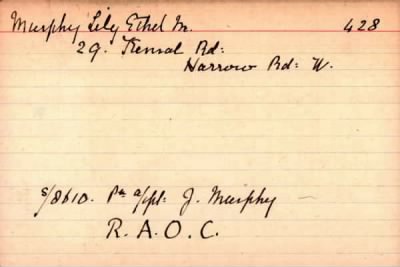 Murphy Lily Ethel M. 428
29. Kensal Rd:
Harrow Rd: W.
S/8610. Pte a/cpl: J. Murphy —
R.A.O.C.